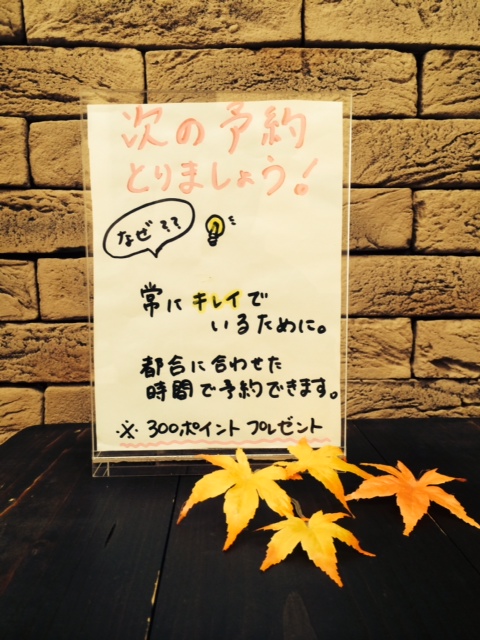 次の予約
とりましょう!
なぜ??
常にキレイで
いるために。
都合に合わせた
時間で予約できます。
※ 300ポイント プレゼント